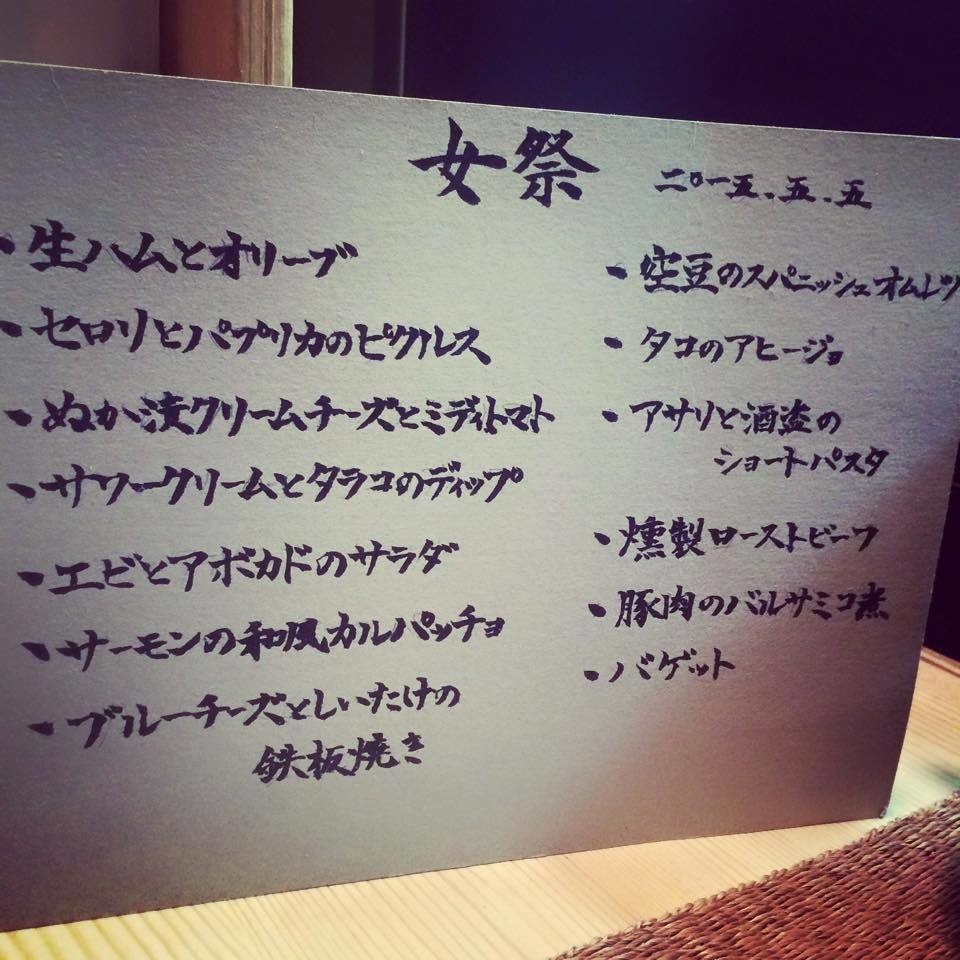 女祭
二〇一五.五.五
・生ハムとオリーブ
・セロリとパプリカのピクルス
・ぬか漬クリームチーズとミディトマト
・サワークリームとタラコのディップ
・エビとアボカドのサラダ
・サーモンの和風カルパッチョ
・ブルーチーズとしいたけの
鉄板焼き
・空豆のスパニッシュオムレツ
・タコのアヒージョ
・アサリと酒盗の
ショートパスタ
・燻製ローストビーフ
・豚肉のバルサミコ煮
・バゲット